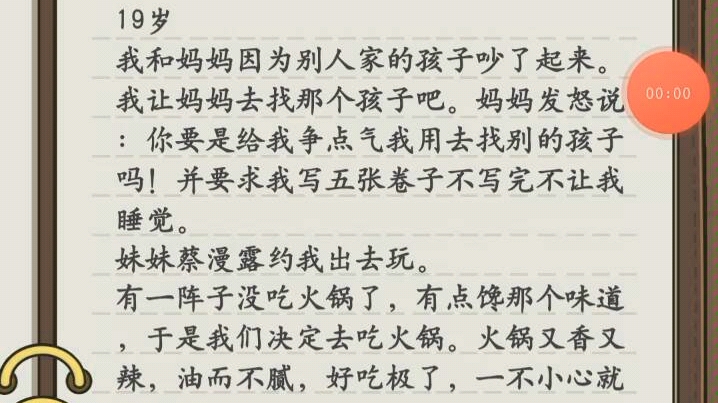 19岁
我和妈妈因为别人家的孩子吵了起来。
我让妈妈去找那个孩子吧。妈妈发怒说
00:00
：你要是给我争点气我用去找别的孩子
吗！并要求我写五张卷子不写完不让我
睡觉。
妹妹蔡漫露约我出去玩。
有一阵子没吃火锅了，有点馋那个味道
，于是我们决定去吃火锅。火锅又香又
辣，油而不腻，好吃极了，一不小心就